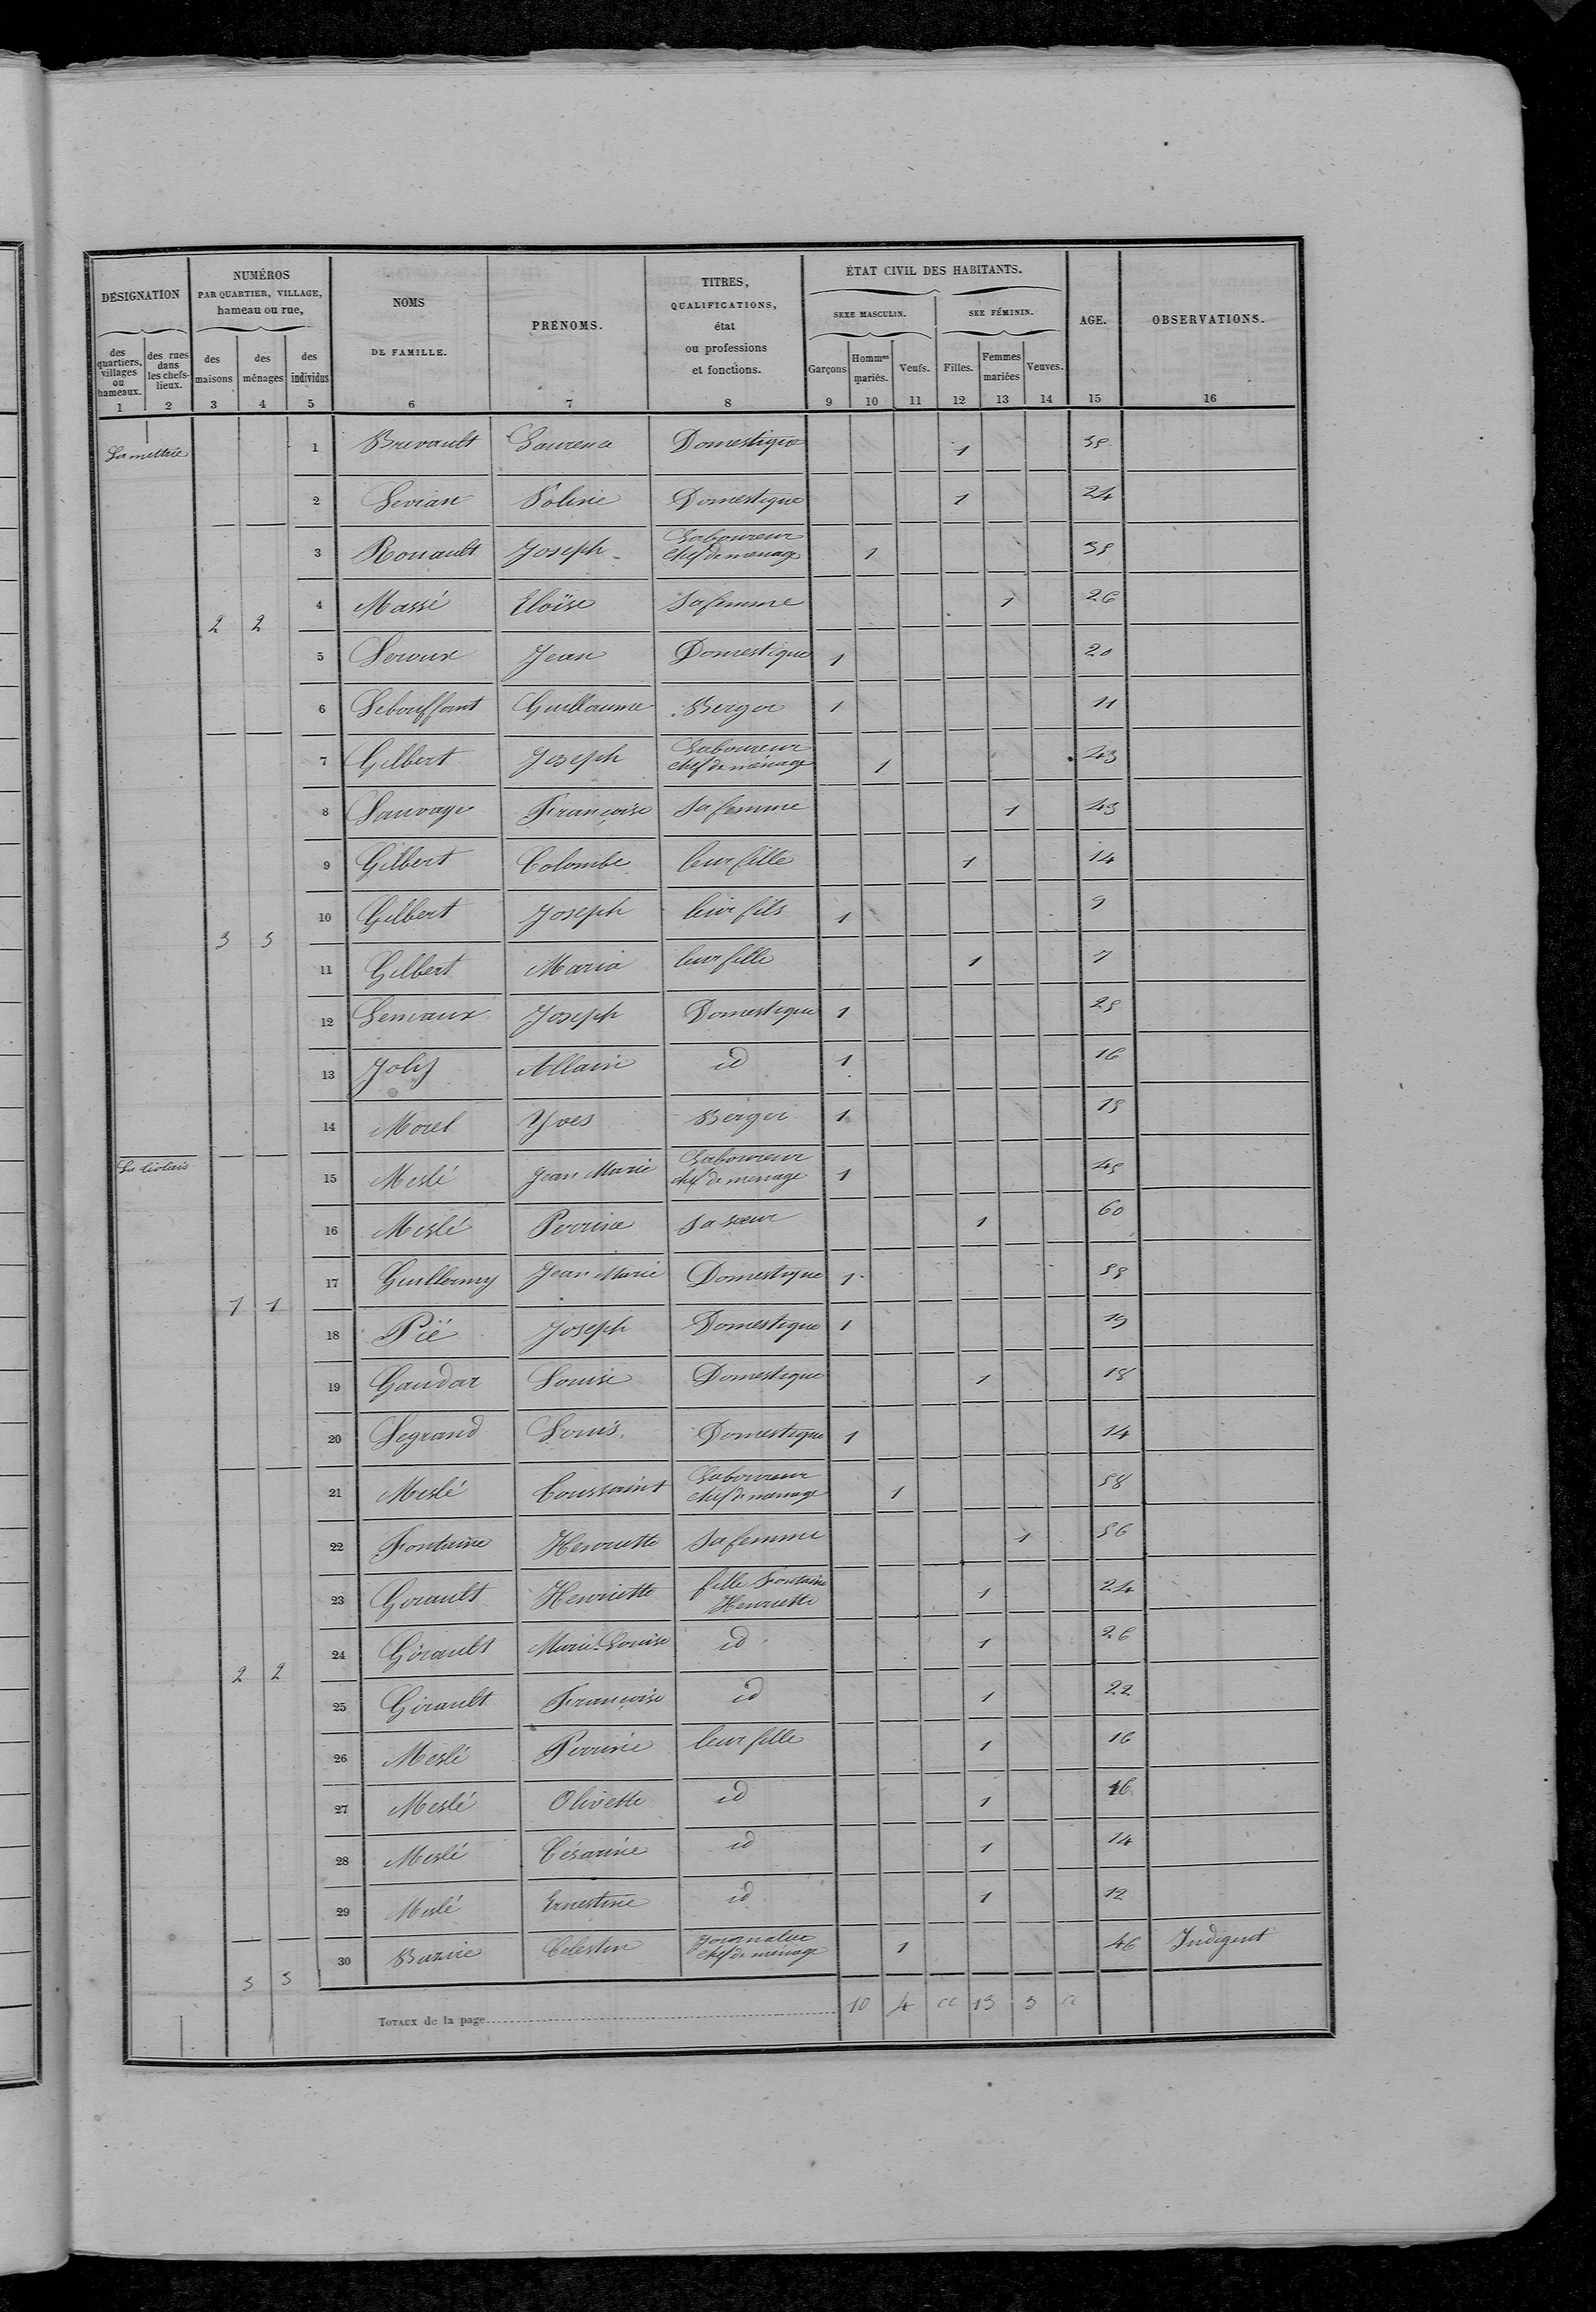 DÉSIGNATION
NUMÉROS
PAR QUARTIER, VILLAGE,
hameau ou rue,
NOMS
DE FAMILLE.
PRÉNOMS.
TITRES,
QUALIFICATIONS,
état
ou professions
et fonctions.
ÉTAT CIVIL DES HABITANTS.
SEXE MASCULIN.
SEE FÉMININ.
AGE.
OBSERVATIONS.
des quartiers, villages ou hameaux.
des rues dans les chefs-lieux.
des maisons
des ménages
des individus
Garçons
Hommes mariés.
Veufs.
Filles.
Femmes mariées
Veuves.
1 2 3 4 5 6 7 8 9 10 11 12 13 14 15 16
La mettrie 1 Brevault Laurence Domestique 1
2 Domestique 1 24
3 Rouault Joseph Laboureur chef de menage 1
2 2 4 Massé Eloïse Sa femme 1 26
5 Jean Domestique 1 20
6 Lebouffant Guillaume Berger 1 11
7 Gilbert Joseph Laboureur chef de ménage 1 43
8 Sauvage Françoise Sa femme 1 43
9 Gilbert Colombe leur fille 1 14
10 Gilbert Joseph leur fils 1 9
3 3 11 Gilbert Maria leur fille 1 7
12 Joseph Domestique 1
13 Joly Allain id 1 16
14 Morel Yves Berger 1
15 Meslé Jean Marie Laboureur chef de menage 1
16 Meslé Perrine Sa sœur 1 60
17 Guillermy Jean Marie Domestique 1
1 1 18 Pié Joseph Domestique 1 19
19 Gaudar Louise Domestique 1 18
20 Legrand Louis Domestique 1 14
21 Meslé Toussaint Laboureur chef de menage 1 58
22 Fontaine Henriette Sa femme 1 56
23 Girault Henriette fille Fontaine Henriette 1 24
24 Girault Marie-Louise id 1 26
2 2 25 Girault Françoise id 1 22
26 Meslé Perrine leur fille 1 16
27 Meslé Olivette id 1 16
28 Meslé Césarine id 1 14
29 Meslé Ernestine id 1 12
3 3 30 Celestin Journalier chef de ménage 1 46 Indigent
TOTAUX de la page 10 4 " 13 3 "